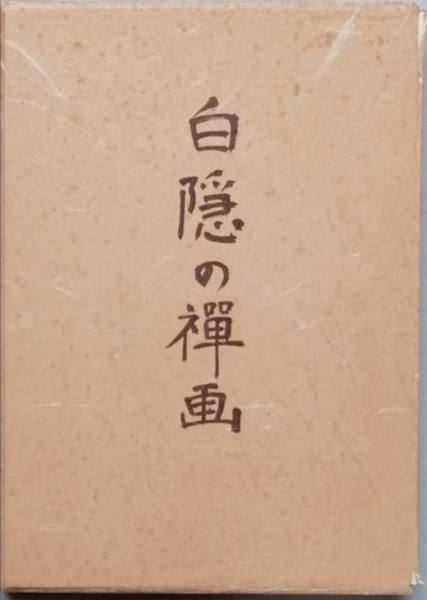 白隠の禪画